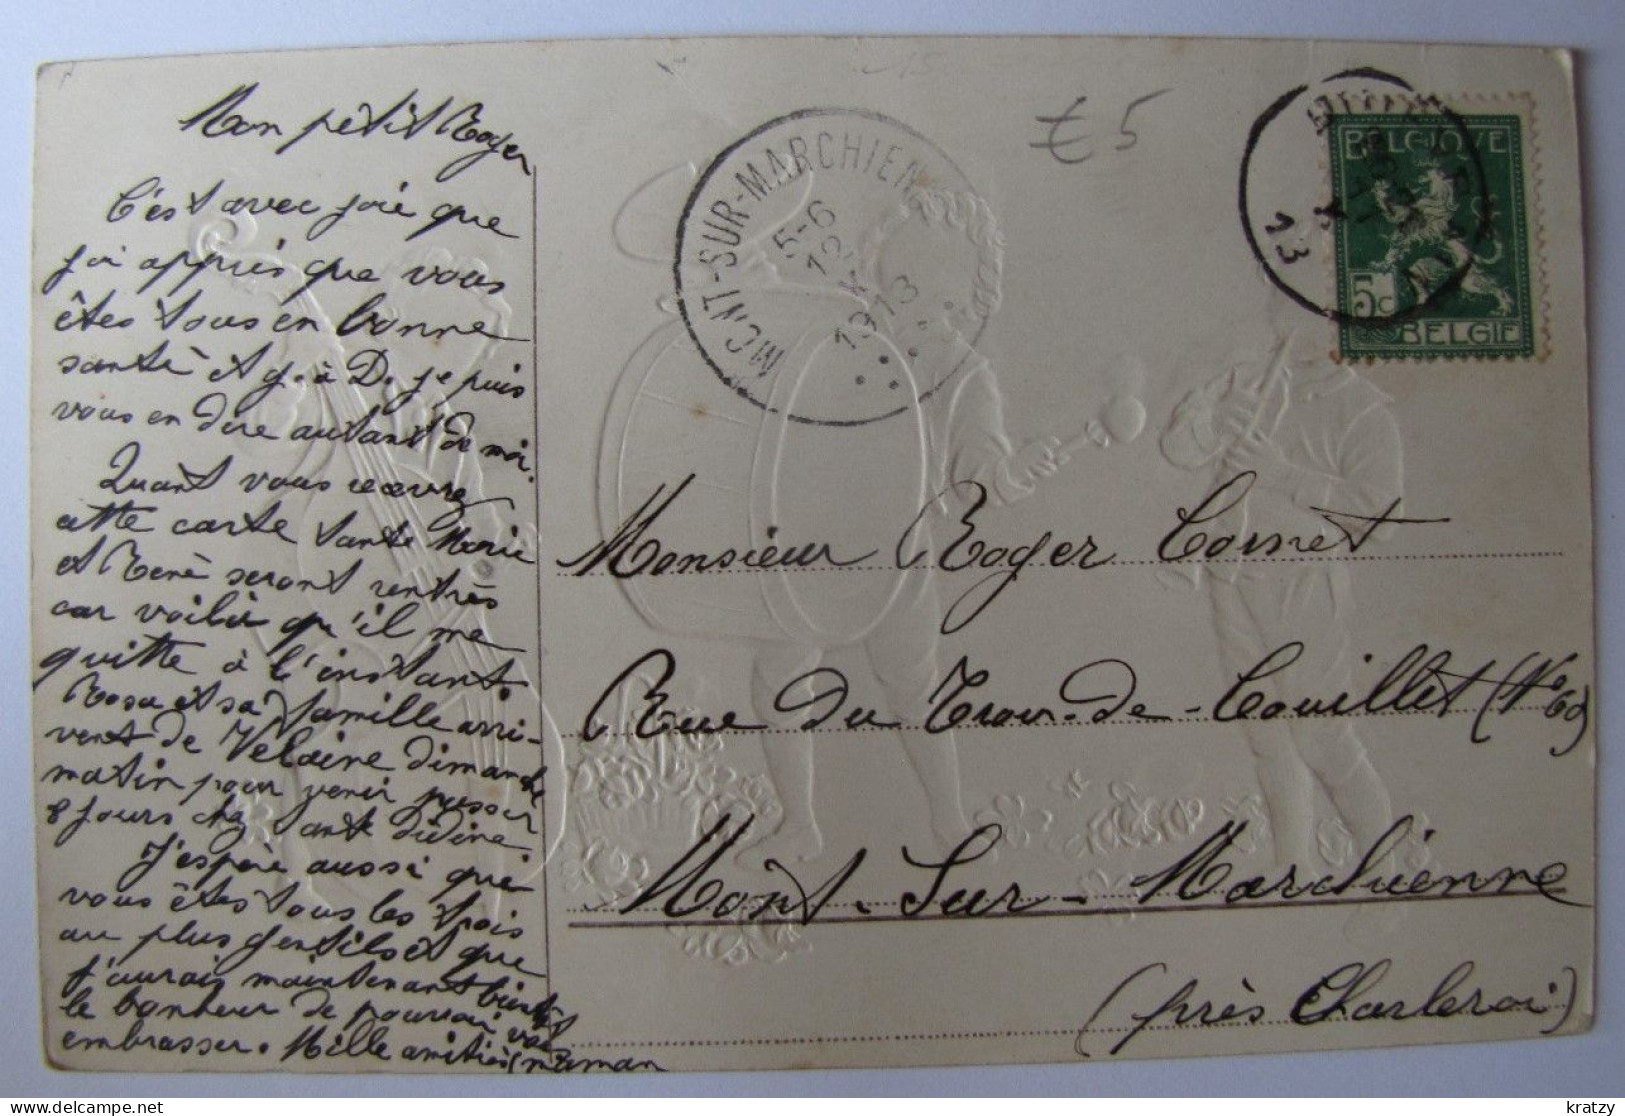 Mon pétit Roger
C'est avec joie que
j'ai appris que vous
êtes tous en bonne
santé et g. à D. je puis
vous en dire autant de moi.
Quant vous recevrez
cette carte tante Marie
et René seront rentrés
car voilà qu'il me
quitte à l'instant.
Rosa et sa famille arri-
vent de Velaine dimanche
matin pour venir passer
8 jours chez tante divine
J'espère aussi que
vous êtes tous les trois
au plus gentils et que
j'aurai maintenant bientôt
le bonheur de pouvoir vous
embrasser. Mille amitiés maman
MONT-SUR-MARCHIEN
5-6
12
1913
€ 5
13
BELGIQUE
5c
BELGIË
Monsieur Roger Cornet
Rue du Trou-de-Couillet (No 60)
Mont-Sur-Marchienne
(près Charleroi)
kratzy